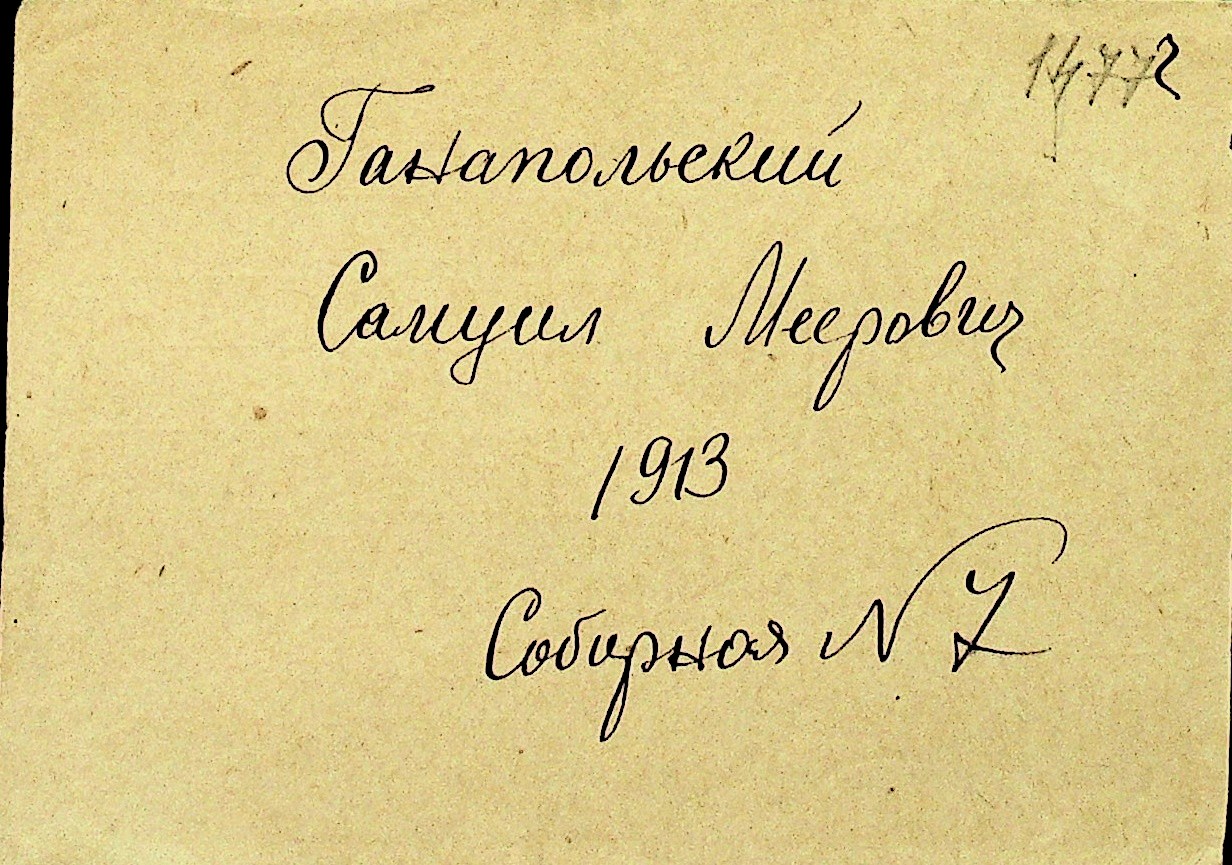 Ганапольский
Самуил Меерович
1913
Соборная N